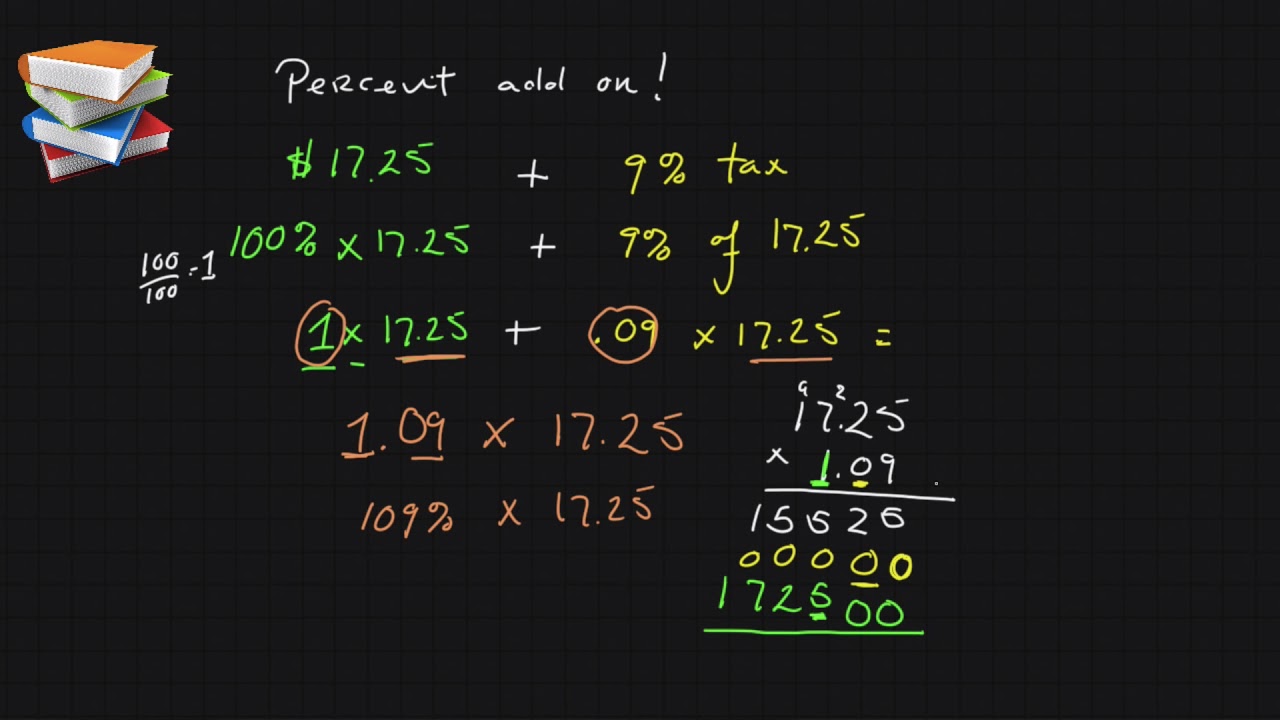 Percent add on!
$17.25 + 9% tax
100% x 17.25 + 9% of 17.25
100/100 = 1
1 x 17.25 + .09 x 17.25 =
1.09 x 17.25
109% x 17.25
2
17.25
x 1.09
15525
00000
172500